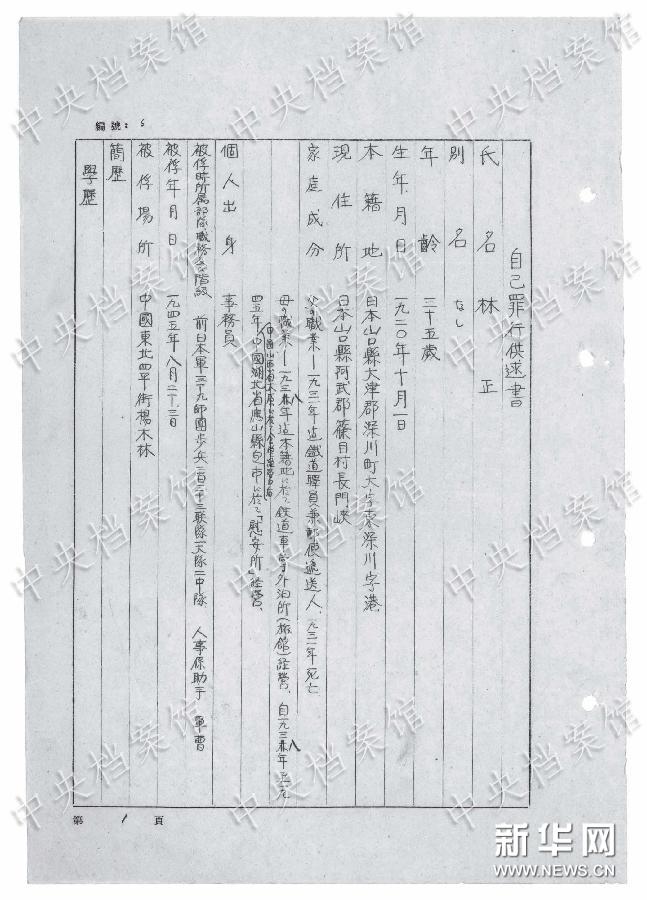 編號: 6
自己罪行供述書
氏名 林 正
別名 なし
年齡 三十五歲
生年月日 一九二〇年十月一日
本籍地 日本山口縣大津郡深川町大字東深川字港
現住所 日本山口縣阿武郡篠目村長門峽
家庭成分 父の職業―一九三一年迄鐵道職員兼郵便遞送人、一九三一年死亡
母の職業―一九三八年迄本籍地に於て鉄道車掌外泊所(旅館)経營、自一九三八年至一九
四五年、中國湖北省應山縣 に於て「慰安所」経營、
個人出身 事務員
被俘時所属部隊職務及階級 前日本軍三十九師團歩兵二百三十三聯隊一大隊二中隊 人事係助手 軍曹
被俘年月日 一九四五年八月二十三日
被俘場所 中國東北四平街楊木林
簡歷
學歷
第 1 頁
中央档案馆
新华网
WWW.NEWS.CN